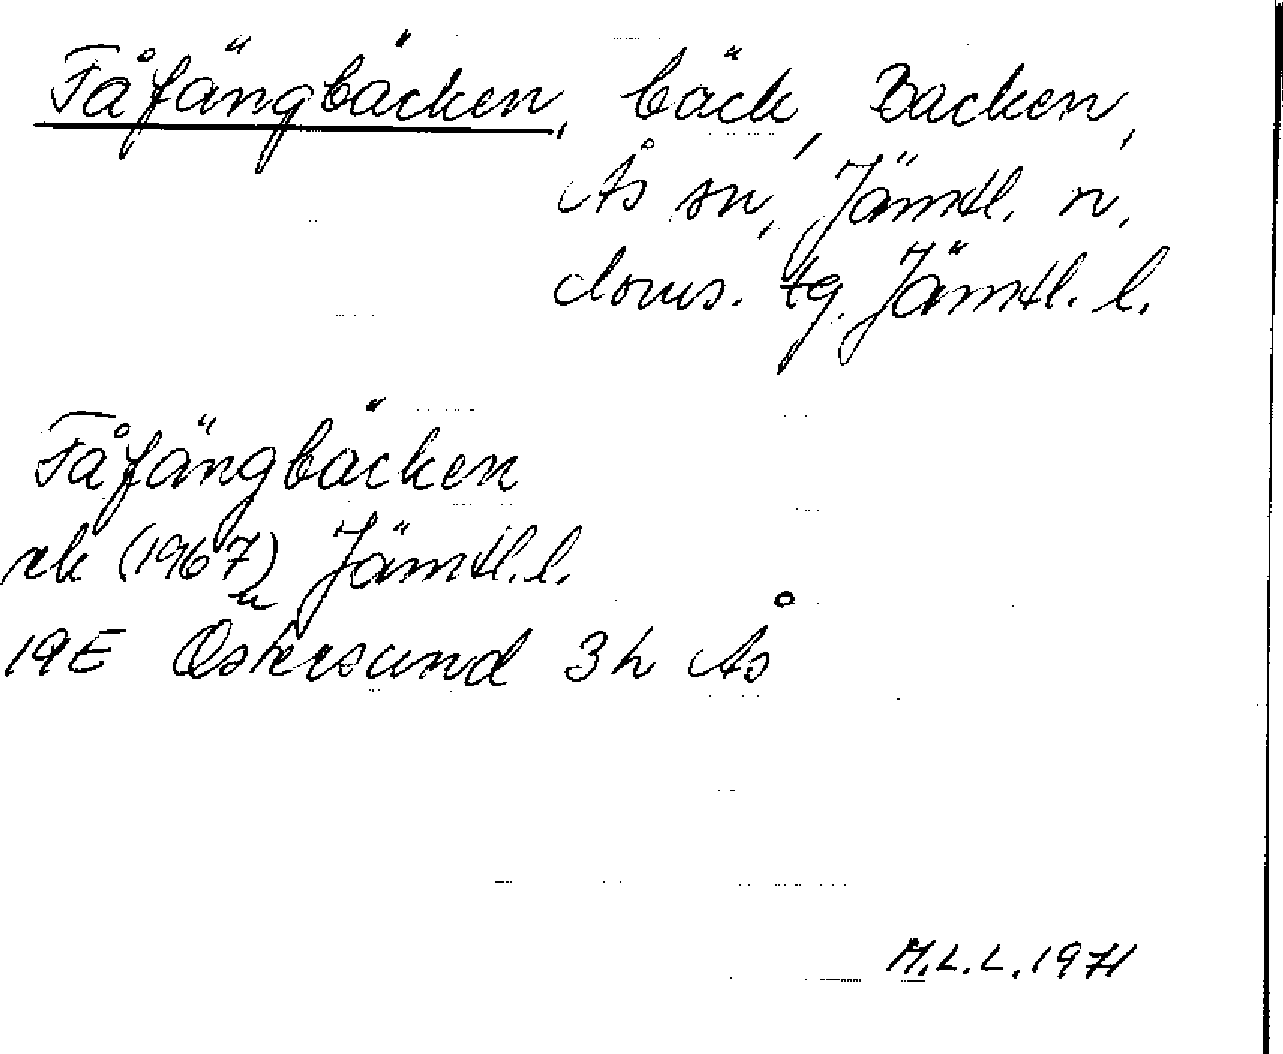 Fåfängbäcken, bäck, Backen,
Ås sn, Jämtl. n.
doms. tg. Jämtl. l.
Fåfängbäcken
rk (1967) Jämtl. l.
19E Östersund 3h Ås
M.L.L. 1971